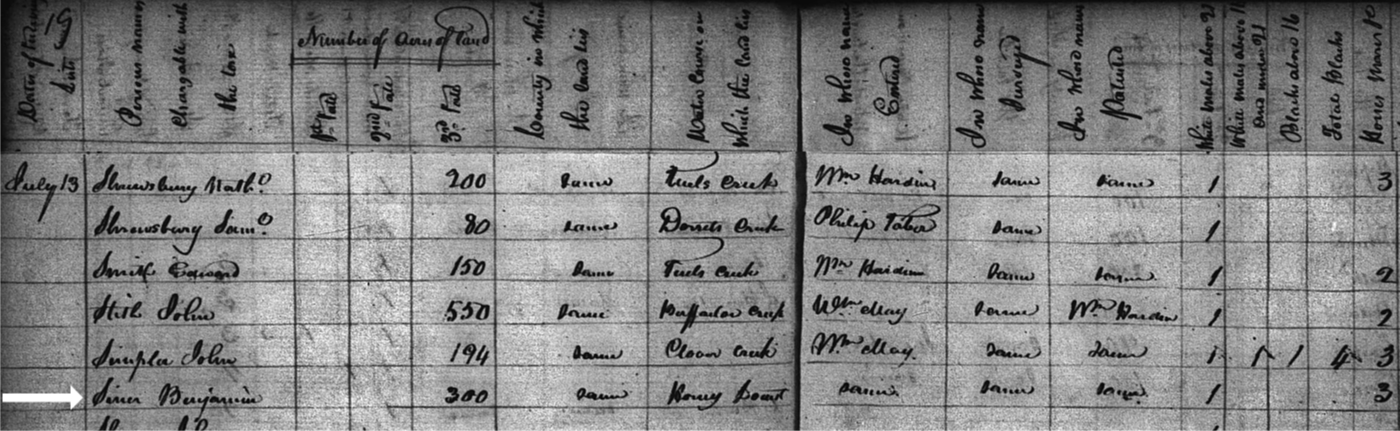 19
Date of List Persons names Chargable with the tax Number of Acres of Land 1st Rate 2nd Rate 3rd Rate County in which the land lies Water Course on which the land lies In whose name Entered In whose name Surveyed In whose name Patented White males above 21 White males above 16 and under 21 Blacks above 16 Total Blacks Horses Mares
July 13 Shrewsbury Nathl. 200 Same Creek Wm Hardin Same Same 1 3
Shrewsbury Saml. 80 Same Dorrets Creek Philip Tabor Same 1
Smith Edward 150 Same Creek Wm Hardin Same Same 1 2
Stith John 550 Same Creek Wm May Same Wm Hardin 1 2
Simpler John 194 Same Clover Creek Wm May Same Same 1 1 1 4 3
Benjamin 300 Same Same Same Same 1 3